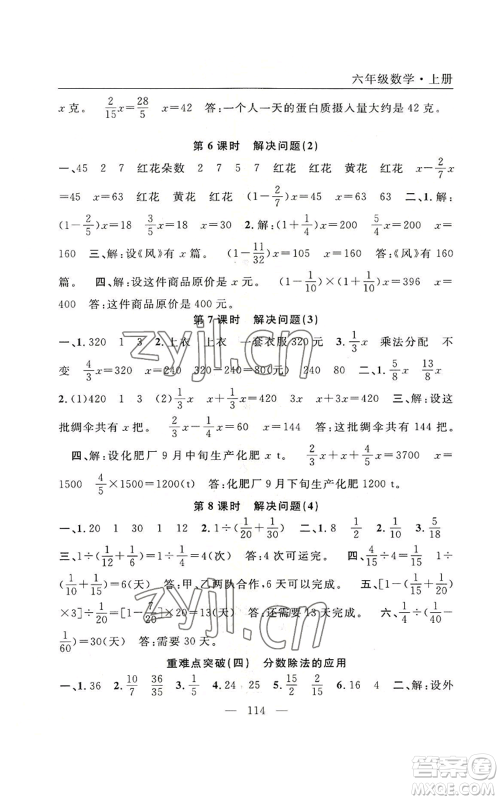 六年级数学·上册
x克。 2/15x=28/5 x=42 答:一个人一天的蛋白质摄入量大约是42克。
第6课时 解决问题(2)
一、45 2 7 红花朵数 2 7 5 7 红花 红花 黄花 红花 x-2/7x
=45 x=63 红花 黄花 红花 (1-2/7)x=45 x=63 二、1.解:
(1-2/5)x=48 x=80 2.解:(1+1/4)x=200 x=
160 三、解:设《风》有x篇。 (1-11/32)x=105 x=160 答:《风》有160
篇。 四、解:设这件商品原价是x元。 (1-1/5)×(1-1/10)x=288 x=
400 答:这件商品原价是400元。
第7课时 解决问题(3)
一、1.320 1 3 2.上衣 上衣 一套衣服320元 3.1/3x 乘法分配 不
变 4/3x=320 x=240 320-240=80(元) 240 80 二、1.5/8x 13/8x
2.(1)420 1 3 1/3x 4/3x 1/3x x+1/3x=420 三、解:设这
批绸伞共有x把。 答:这批绸伞共有 把。
四、解:设化肥厂9月中旬生产化肥x t。 x+4/5x+x=3700 x=
1500 4/5×1500=1200 答:化肥厂9月下旬生产化肥1200 t。
第8课时 解决问题(4)
一、1.20 1 30 1 1 2.1÷(1/20+1/30) 二、1/3 1/4 5/18
三、1÷(1/12+1/6)=4(次) 四、
1÷(1/10+1/15)=6(天) 答:甲、乙两队合作,6天可以完成。 五、[1-(1/10+
×3]÷ =[1-7/20]× =13(天) 答:还需要13天完成。 六、
1/60)=30(天) 答:需要30天。
重难点突破(四) 分数除法的应用
一、1.36 2.10/7 36/35 3. 4.24 25 5.20 16 二、1.解:设外
— 114 —
zyjl.cn
zyjl.cn
作业精灵